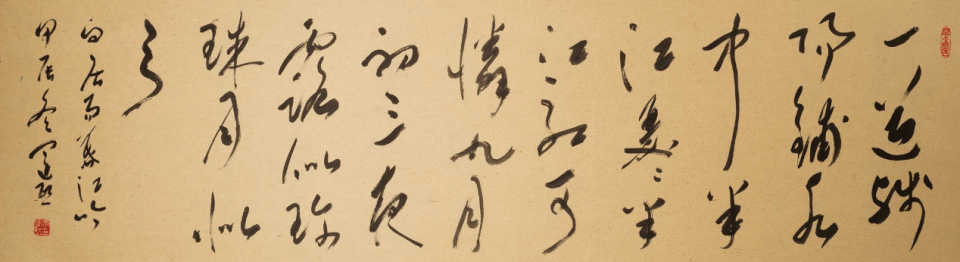 一道殘
陽鋪水
中半
江瑟瑟半
江紅可
憐九月
初三夜
露似珍
珠月似
弓
白居易暮江吟
甲辰冬